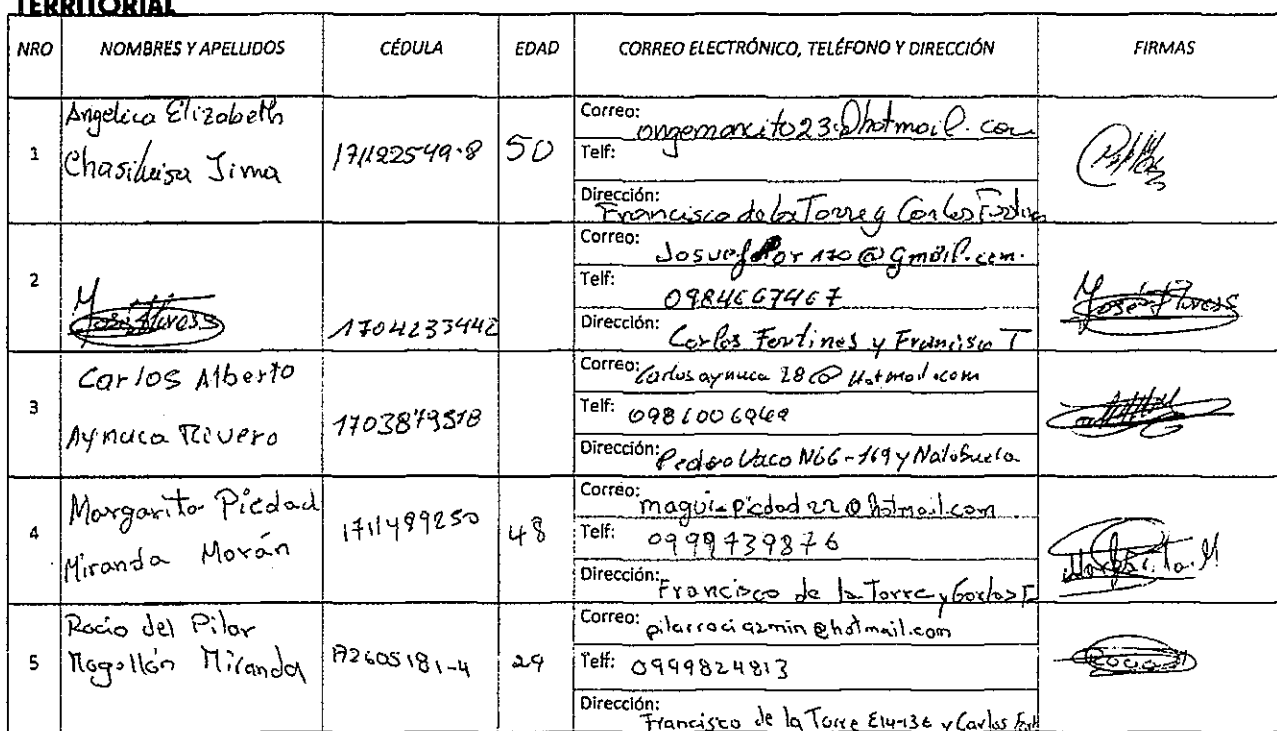 TERRITORIAL
NRO NOMBRES Y APELLIDOS CÉDULA EDAD CORREO ELECTRÓNICO, TELÉFONO Y DIRECCIÓN FIRMAS
1 Angelica Elizabeth
Chasiluisa Jima
171122549-8 50
Correo: angemarcito23@hotmail.com
Telf:
Dirección: Francisco de la Torre y Carlos
2 José Flores
1704233442
Correo: @gmail.com.
Telf: 0984667467
Dirección: Carlos Fortines y Francisco T
José Flores
3 Carlos Alberto
Aynuca Rivero
1703879518
Correo: Carlosaynuca28@Hotmail.com
Telf:
Dirección: Pedro Vaca N66-169 y
4 Margarita Piedad
Miranda Morán
1711489250 48
Correo:
Telf: 0999739876
Dirección: Francisco de la Torre y Carlos F
Margarita M
5 Rocio del Pilar
Mogollón Miranda
172605181-4 29
Correo: @hotmail.com
Telf: 0999824813
Dirección: Francisco de la Torre E14-136 y Carlos Fort
Rocio